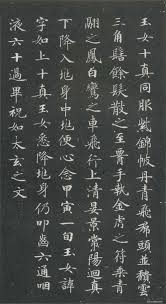 玉女十真同服紫錦帔丹青飛帬頭並積雲
三角髻餘髮散之至腰手執金虎之符乘青
翮之鳳白鸞之車飛行上清晏景常陽迴真
下降入兆身中兆便心念甲寅一旬玉女諱
字如上十真玉女悉降兆身仍叩齒六通咽
液六十過畢祝如太玄之文